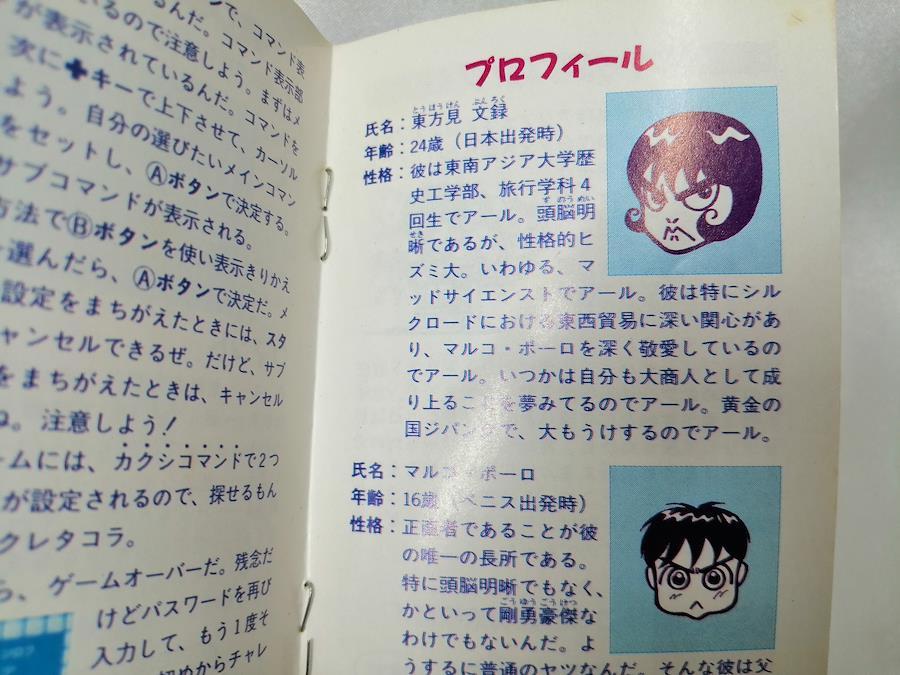 で、コマンド表
んだ。コマンド表示部
いるので注意しよう。まずはメ
が表示されているんだ。コマンドを
次に✚キーで上下させて、カーソル
よう。自分の選びたいメインコマン
をセットし、Ⓐボタンで決定する。
サブコマンドが表示される。
方法でⒷボタンを使い表示きりかえ
選んだら、Ⓐボタンで決定だ。メ
設定をまちがえたときには、スタ
ャンセルできるぜ。だけど、サブ
をまちがえたときは、キャンセル
ね。注意しよう!
ームには、カクシコマンドで2つ
が設定されるので、探せるもん
クレタコラ。
ら、ゲームオーバーだ。残念だ
けどパスワードを再び
入力して、もう1度そ
初めからチャレ
プロフィール
氏名:東方見 文録
とうほうけん ぶんろく
年齢:24歳(日本出発時)
性格:彼は東南アジア大学歴
史工学部、旅行学科4
回生でアール。頭脳明
ずのうめい
晰であるが、性格的ヒ
せき
ズミ大。いわゆる、マ
ッドサイエンストでアール。彼は特にシル
クロードにおける東西貿易に深い関心があ
り、マルコ・ポーロを深く敬愛しているの
でアール。いつかは自分も大商人として成
り上ることを夢みてるのでアール。黄金の
国ジパングで、大もうけするのでアール。
氏名:マルコ・ポーロ
年齢:16歳(ベニス出発時)
性格:正直者であることが彼
の唯一の長所である。
特に頭脳明晰でもなく、
かといって剛勇豪傑な
ごうゆうごうけつ
わけでもないんだ。よ
うするに普通のヤツなんだ。そんな彼は父